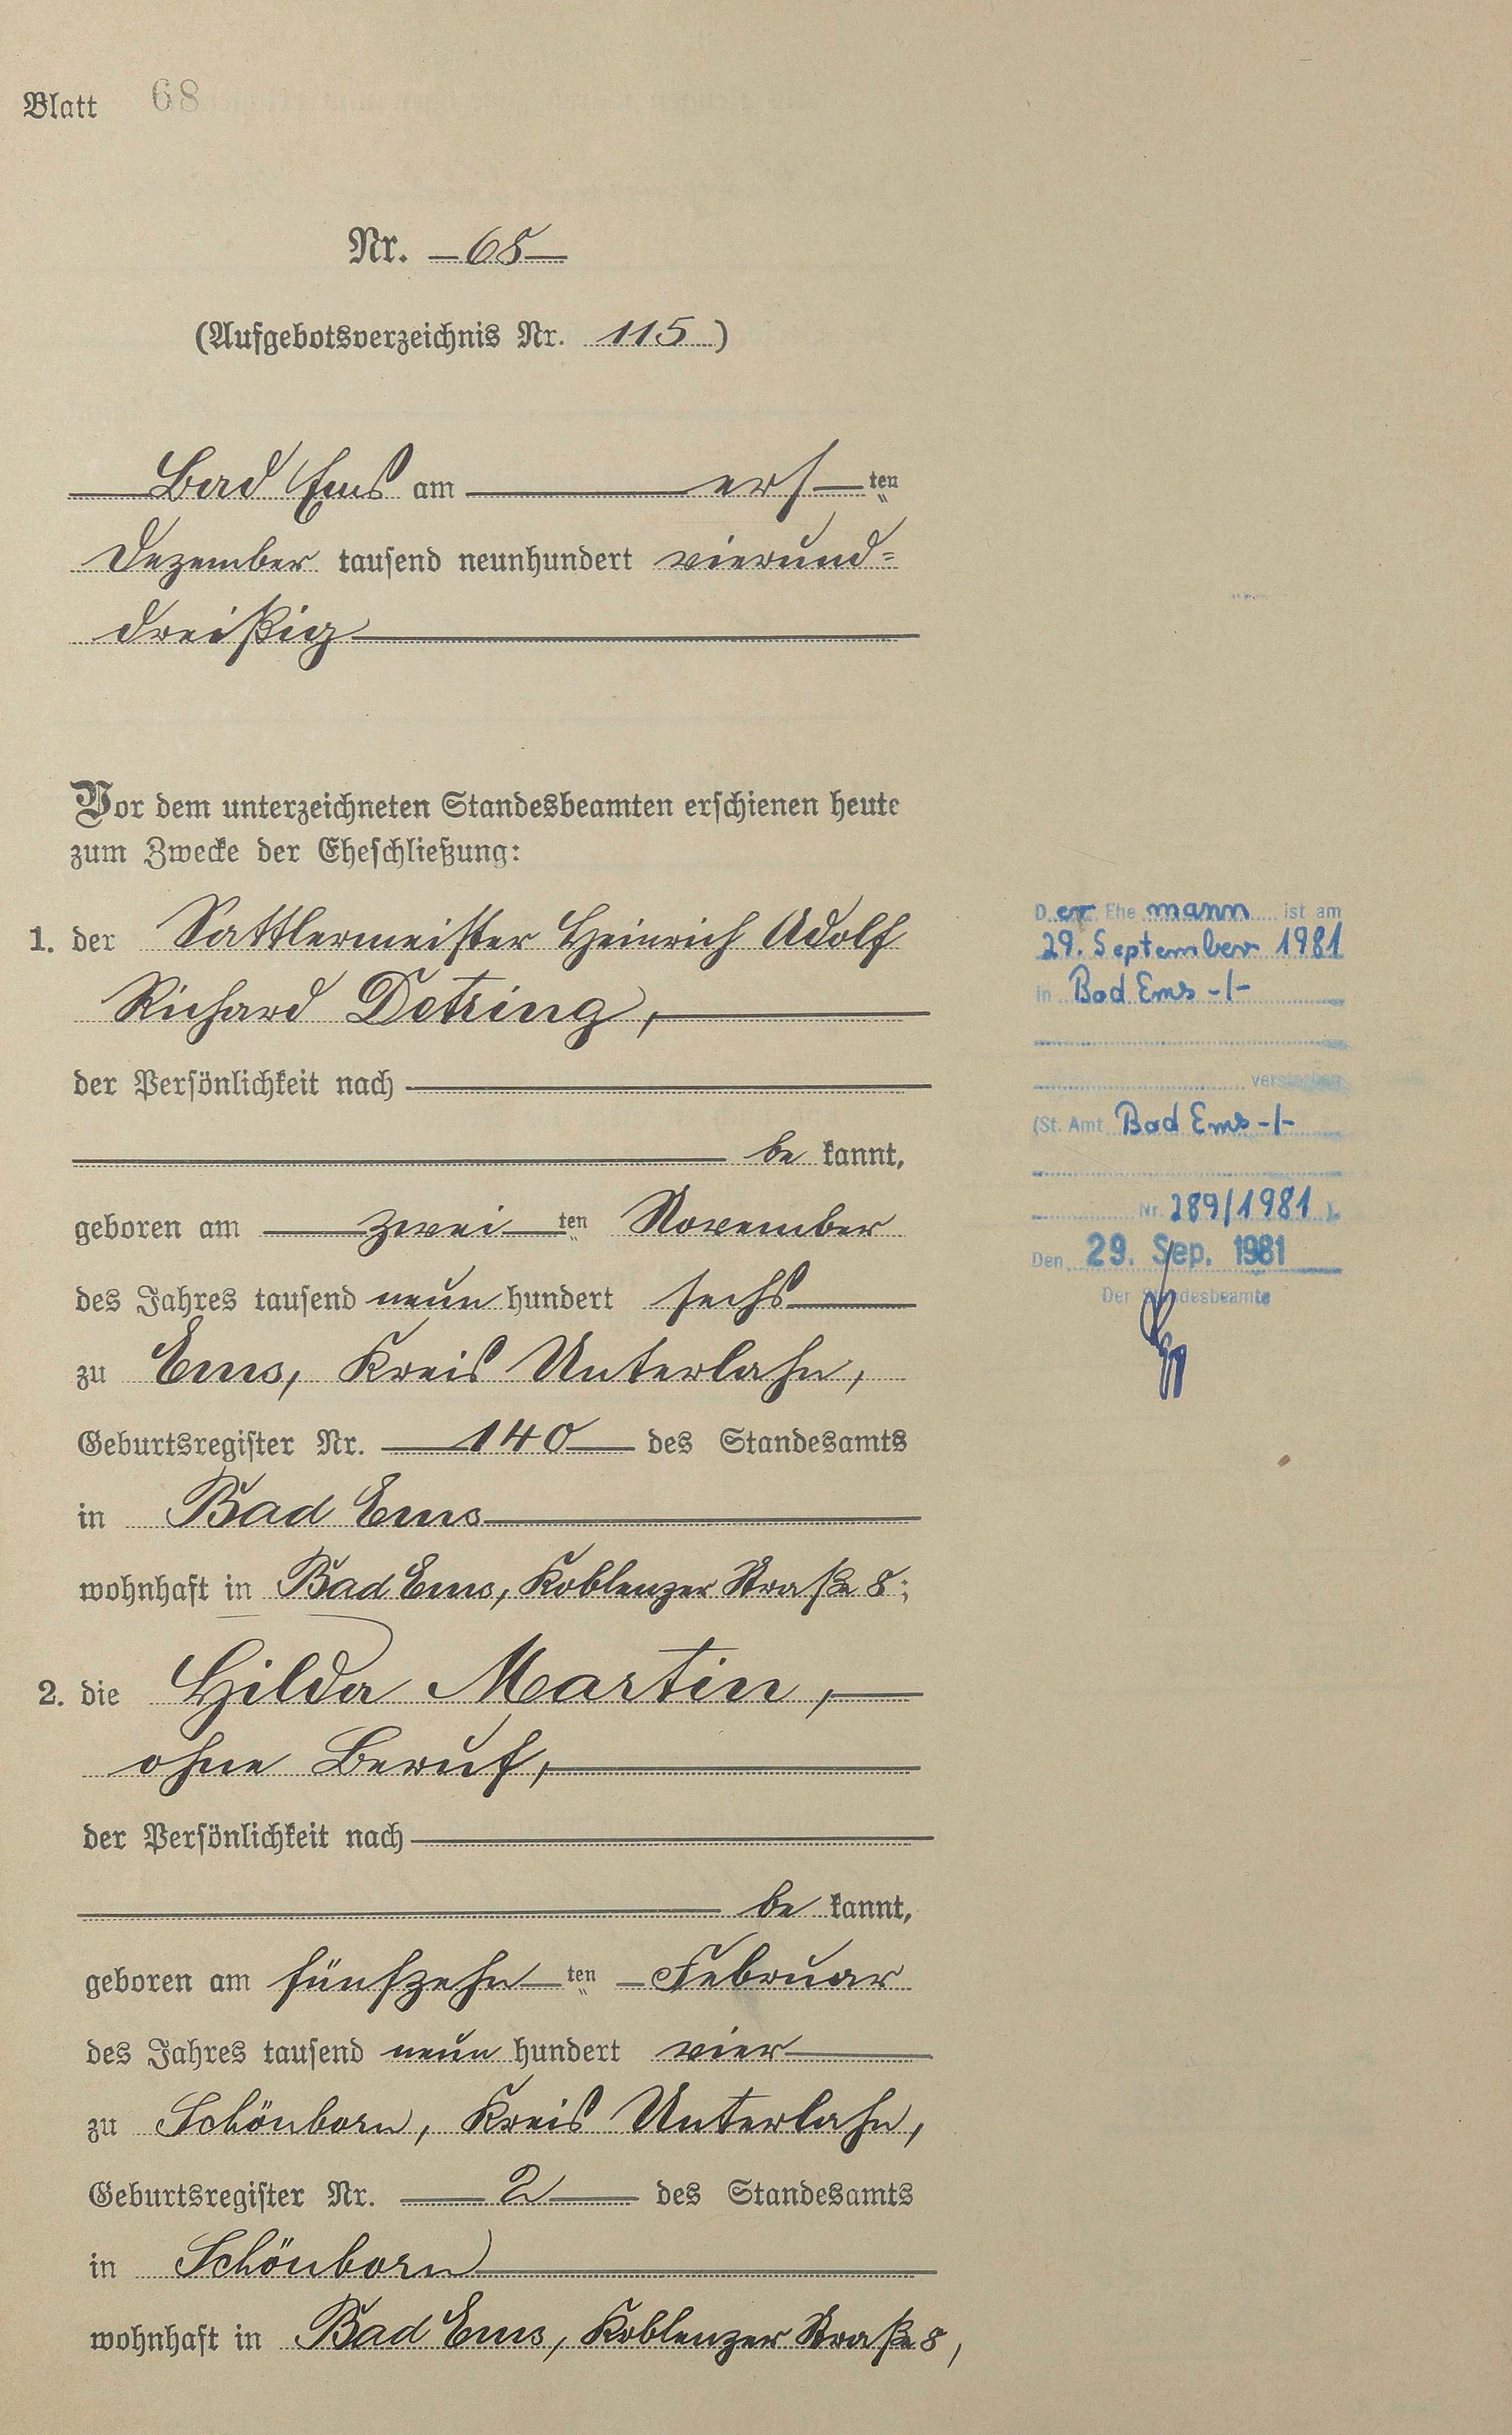 Blatt 68
Nr. 65
(Aufgebotsverzeichnis Nr. 115)
Bad Ems am erf ten
Dezember tausend neunhundert vierund=
dreißig
Vor dem unterzeichneten Standesbeamten erschienen heute
zum Zwecke der Eheschließung:
1. der Sattlermeister Heinrich Adolf
Richard Detring,
der Persönlichkeit nach
be kannt,
geboren am zwei ten November
des Jahres tausend neun hundert sechs
zu Ems, Kreis Unterlahn,
Geburtsregister Nr. 140 des Standesamts
in Bad Ems
wohnhaft in Bad Ems, Koblenzer Straße 8;
2. die Hilda Martin,
ohne Beruf,
der Persönlichkeit nach
be kannt,
geboren am fünfzehn ten Februar
des Jahres tausend neun hundert vier
zu Schönborn, Kreis Unterlahn,
Geburtsregister Nr. 2 des Standesamts
in Schönborn
wohnhaft in Bad Ems, Koblenzer Straße 8,
Der Ehe mann ist am
29. September 1981
in Bad Ems -/-
verstorben
(St. Amt Bad Ems -/-
Nr. 289/1981).
Den 29. Sep. 1981
Der Standesbeamte